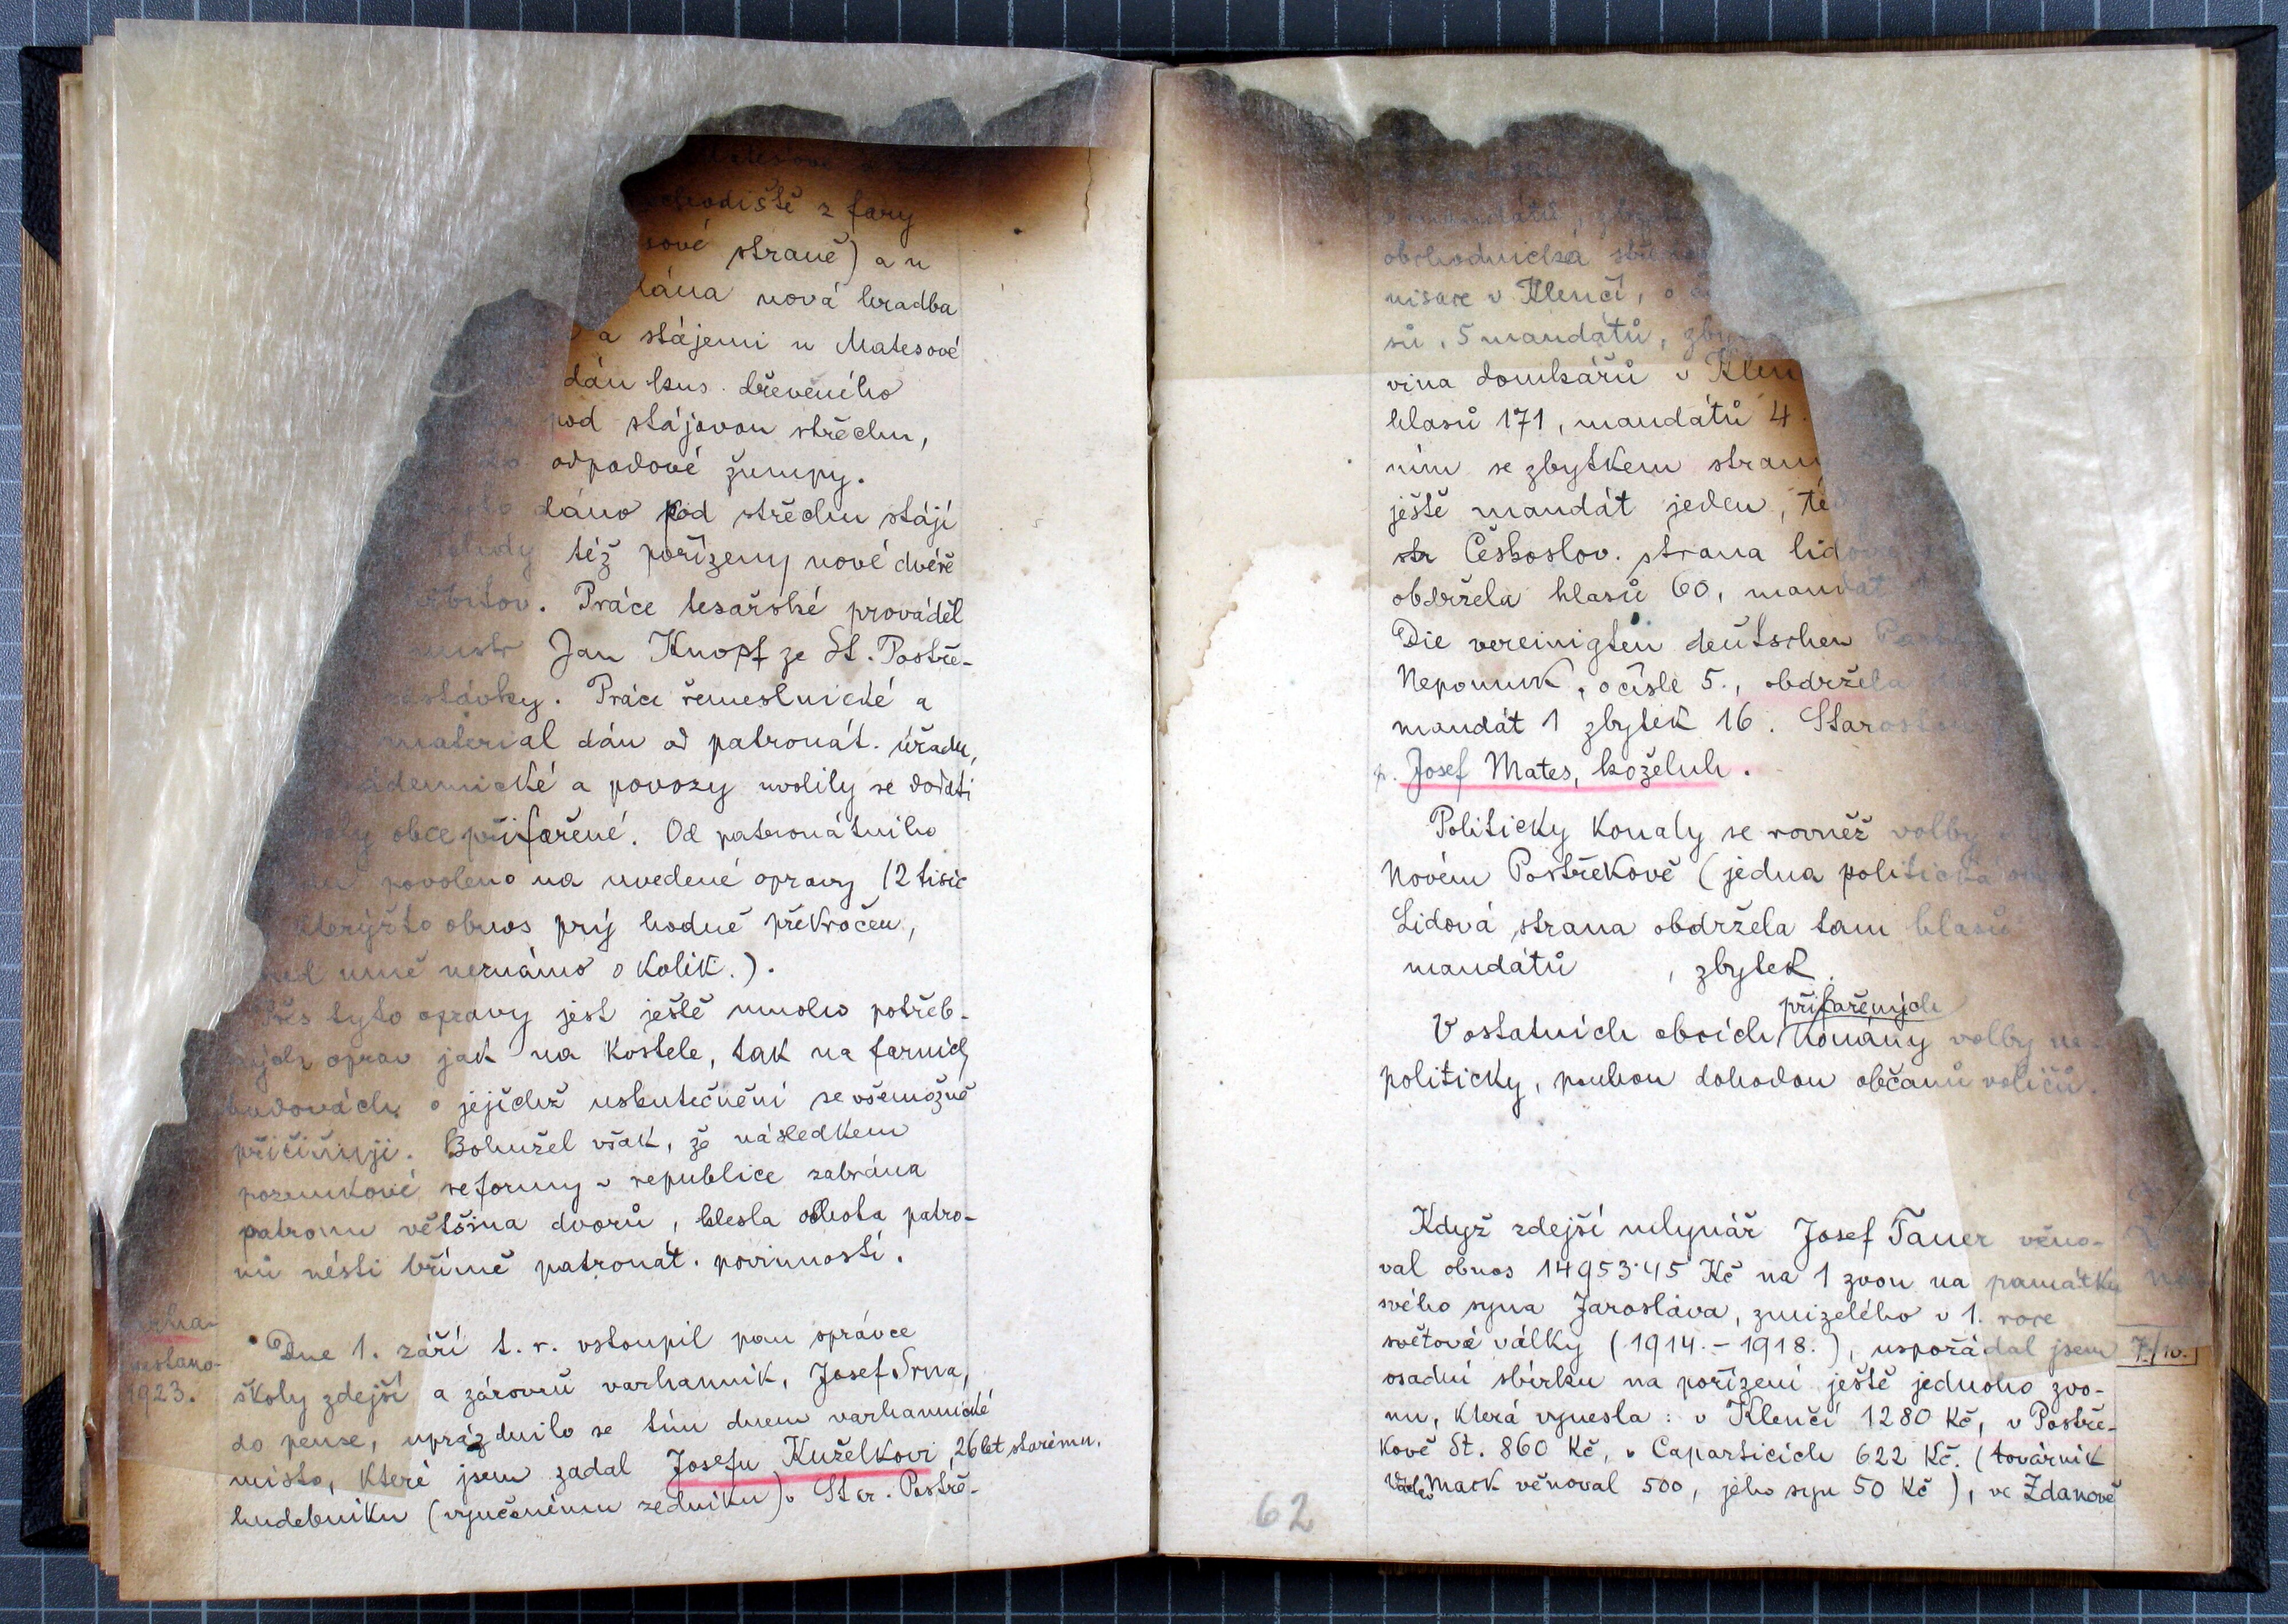 z fary
straně) a u
nová hradba
a stájemi u Matesové
dán kus dřeveného
pod stájovou střechu,
odpadové žumpy.
dáno pod střechu stájí
též pořízeny nové dvéře
Práce tesařské prováděl
Jan Knopf ze St. Postře-
Práce řemeslnické a
material dán od patronát. úřadu,
a povozy uvolily se dodati
obce přifařené. Od patronátního
povoleno na uvedené opravy 12 tisíc
kterýžto obnos prý hodně překročen,
mně neznámo o kolik.).
tyto opravy jest ještě mnoho potřeb-
ných oprav jak na kostele, tak na farních
budovách, o jejichž uskutečnění se všemožně
přičiňuji. Bohužel však, že následkem
pozemkové reformy v republice zabrána
patronu většina dvorů, klesla ochota patro-
nů nésti břímě patronát. povinností.
1923.
Dne 1. září t. r. vstoupil pan správce
školy zdejší a zároveň varhanník, Josef Srna,
do pense, uprázdnilo se tím dnem varhannické
místo, které jsem zadal Josefu Kuželkovi, 26 let starému,
hudebníku (vyučenému zedníku) v Star. Postře-
obchodnická
v Klenčí, o
sů, 5 mandátů,
vina domkářů v
hlasů 171, mandátů 4
ním se zbytkem
ještě mandát jeden,
str Českoslov. strana
obdržela hlasů 60, mandát
Die vereinigten deutschen
Nepomuk, o čísle 5., obdržela
mandát 1 zbytek 16.
p. Josef Mates, koželuh.
Politicky konaly se rovněž volby
Novém Postřekově (jedna
Lidová strana obdržela tam hlasů
mandátů , zbytek .
přifařených
V ostatních obcích konány volby ne-
politicky, pouhou dohodou občanů voličů.
Když zdejší mlynář Josef Tauer věno-
val obnos 14953.45 Kč na 1 zvon na památku
svého syna Jaroslava, zmizelého v 1. roce
světové války (1914.-1918.), uspořádal jsem
7./10.
osadní sbírku na pořízení ještě jednoho zvo-
nu, která vynesla: v Klenčí 1280 Kč, v Postře-
kově St. 860 Kč, v Caparticích 622 Kč. (továrník
Mack věnoval 500, jeho syn 50 Kč), ve Ždanově
62